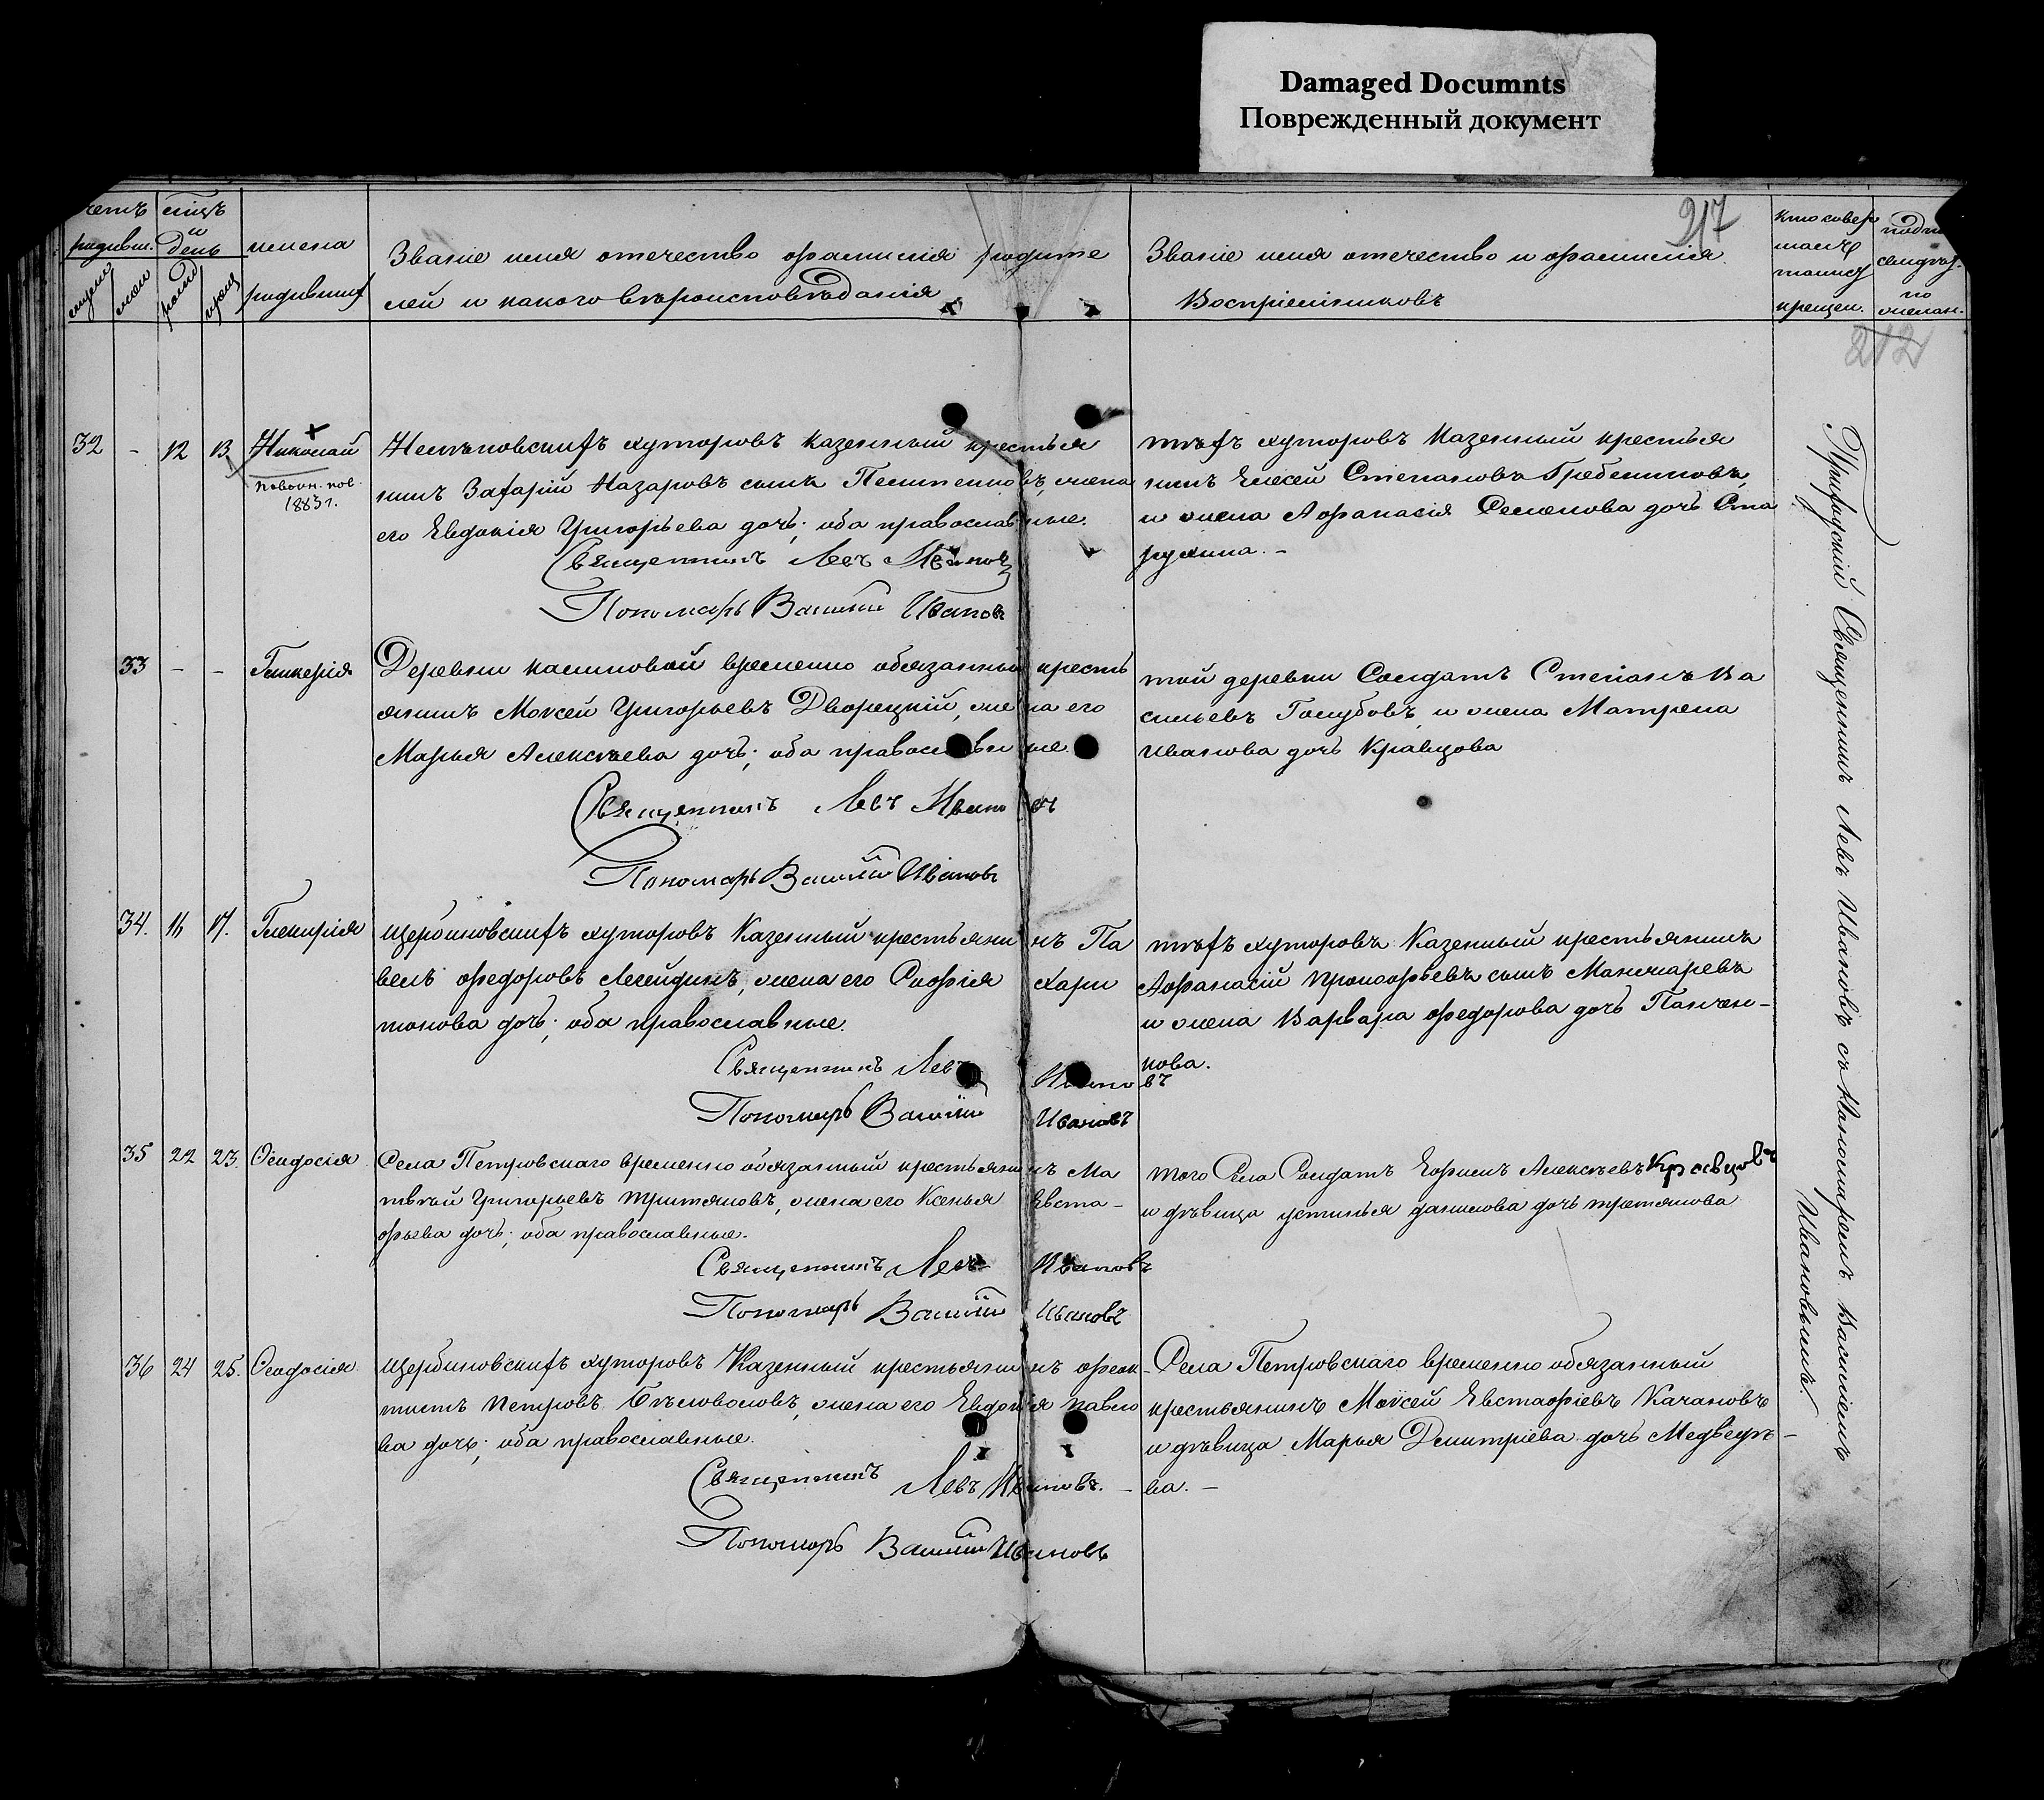 Damaged Documnts
Поврежденный документ
217
четъ
родивш.
мѣсяцъ
и
день
имена
родивших
Званіе имя отечество фамилія родите
лей и какого вѣроисповѣданія
Званіе имя отечество и фамилія
Воспріемниковъ
кто совер
шалъ
таинст
крещен.
212
32 - 12 13 Николай
1883 г.
хуторовъ казенный крестья
нинъ Захарій Назаровъ сынъ жена
его Евдокія Григорьева дочь; оба православные.
Священникъ Левъ Ивановъ
Пономарь Василій Ивановъ
тѣхъ хуторовъ казенный крестья
нинъ Елисей Степановъ Гребенниковъ,
и жена Афанасія Семенова дочь Ста
рухина. -
33 - - Гликерія
Деревни калиновой временно обязанный кресть
янинъ Моисей Григорьевъ Дворецкій, жена его
Марья Алексѣева дочь; оба православные.
Священникъ Левъ Ивановъ
Пономарь Василій Ивановъ
той деревни Солдатъ Степанъ Ва
сильевъ Голубовъ, и жена Матрена
иванова дочь Кравцова
34. 16 17. Гликирія
щербиновскихъ хуторовъ Казенный крестьянинъ Па
велъ федоровъ Легейдинъ, жена его Софія Хари
тонова дочь; оба православные.
Священникъ Левъ Ивановъ
Пономарь Василій Ивановъ
тѣхъ хуторовъ Казенный крестьянинъ
Афанасій прокофьевъ сынъ
и жена Варвара федорова дочь Панчен-
кова.
35 22 23. Феодосія
Села Петровскаго временно обязанный крестьянинъ Ма
твѣй Григорьевъ третяковъ, жена его Ксенья Евста-
фьева дочь; оба православные.
Священникъ Левъ Ивановъ
Пономарь Василій Ивановъ
того Села Солдатъ Ефимъ Алексѣевъ Кравцовъ
и дѣвица устинья данилова дочь третякова
36 24 25. Феодосія
щербиновскихъ хуторовъ Казенный крестьянинъ феок-
тистъ петровъ Бѣловоловъ, жена его Евдокія павло
ва дочь; оба православные.
Священникъ Левъ Ивановъ. -
Пономарь Василій Ивановъ
Села Петровскаго временно обязанный
крестьянинъ Моѵсей Евстафіевъ Качановъ
и дѣвица Марья Дмитріева дочь Медведѣ-
ва. -
Приходскій Священникъ Левъ Ивановъ съ Пономаремъ Василіемъ
Ивановымъ.